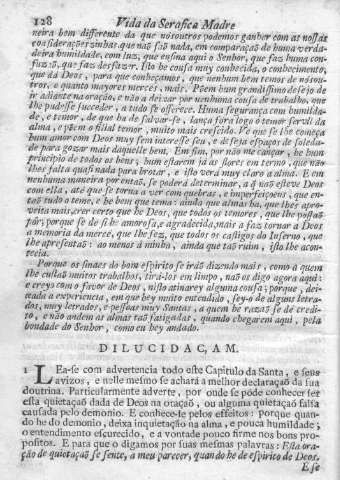 128 Vida da Serafica Madre
neira bem differente da que nósoutros podemos ganhar com as nossas
considerações zinhas que naõ saõ nada, em comparaçaõ de huma verda-
deira humildade, com luz, que ensina aqui o Senhor, que faz huma con-
fuzaõ, que faz desfazer. Isto he cousa muy conhecida, o conhecimento,
que dá Deos, para que conheçamos, que nenhum bem temos de nósou-
tros, e quanto mayores mercés, mais. Põem hum grandissimo desejo de
ir adiante na oraçaõ, e naõ a deixar por nenhuma cousa de trabalho, que
lhe pudesse succeder, a tudo se offerece. Huma segurança com humilda-
de, e temor, de que ha de salvar-se, lança fora logo o temor servil da
alma, e põem o filial temor, muito mais crescido. Ve que se lhe começa
hum amor com Deos muy sem interesse seu, e deseja espaços de soleda-
de para gozar mais daquelle bem. Em fim, por não me cançar, he hum
principio de todos os bens; hum estarem já as flores em termo, que naõ
lhes falta quasi nada para brotar, e isto verá muy claro a alma. E em
nenhuma maneira por entaõ, se poderá determinar, a q̃ naõ esteve Deos
com ella, até que se torna a ver com quebras, e imperfeiçoens, que en-
taõ tudo o teme, e he bem que tema: ainda que almas ha, que lhes apro-
veita mais, crer certo que he Deos, que todos os temores, que lhe possaõ
pór; porque se de si he amorosa, e agradecida, mais a faz tornar a Deos
a memoria da mercé, que lhe fez, que todos os castigos do Inferno, que
lhe apresentaõ: ao menos á minha, ainda que taõ ruim, isto lhe acon-
tecia.
Porque os sinaes do bom espirito se irão dizendo mais, como a quem
lhe custaõ muitos trabalhos, tirá-los em limpo, naõ os digo agora aqui:
e creyo com o favor de Deos, nisto atinarey alguma cousa; porque, dei-
xada a experiencia, em que hey muito entendido, sey-o de alguns letra-
dos, muy letrados, e pessoas muy Santas, a quem he razaõ se dé credi-
to, e não andem as almas taõ fatigadas, quando chegarem aqui, pela
bondade do Senhor, como eu hey andado.
DILUCIDAÇAM.
1 LEa-se com advertencia todo este Capitulo da Santa, e seus
avizos, e nelle mesmo se achará a melhor declaraçaõ da sua
doutrina. Particularmente adverte, por onde se póde conhecer se
esta quietaçaõ dada de Deos na oraçaõ, ou alguma quietaçaõ falsa
causada pelo demonio. E conhece-se pelos effeitos: Porque quan-
do he do demonio, deixa inquietação na alma, e pouca humildade;
o entendimento escurecido, e a vontade pouco firme nos bons pro-
positos. E para que o digamos por suas mesmas palavras: Esta ora-
ção de quietaçaõ se sente, a meu parecer, quando he de espirito de Deos.
E se